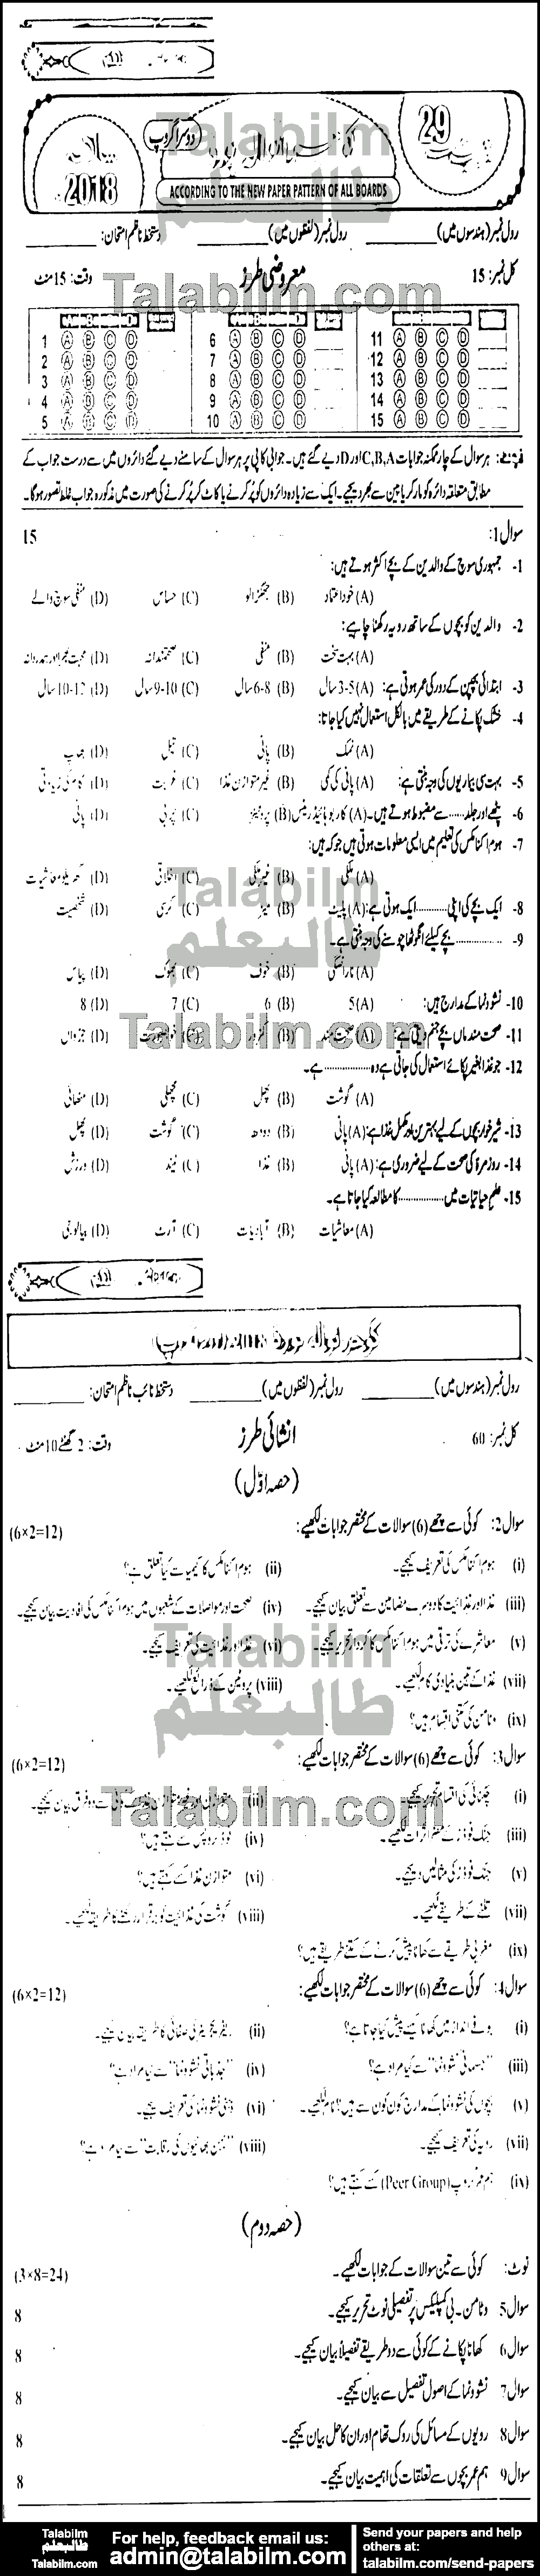 دوسرا گروپ
29
2018
ACCORDING TO THE NEW PAPER PATTERN OF ALL BOARDS
Talabilm
طالبعلم
رول نمبر (ہندسوں میں) رول نمبر (لفظوں میں) دستخط ناظم امتحان:
کل نمبر: 15 معروضی طرز وقت: 15 منٹ
Talabilm.com
1 A B C D
2 A B C D
3 A B C D
4 A B C D
5 A B C D
6 A B C D
7 A B C D
8 A B C D
9 A B C D
10 A B C D
11 A B C D
12 A B C D
13 A B C D
14 A B C D
15 A B C D
ہر سوال کے چار ممکنہ جوابات C,B,A اور D دیے گئے ہیں۔ جوابی کاپی پر ہر سوال کے سامنے دیے گئے دائروں میں سے درست جواب کے
مطابق متعلقہ دائرہ کو مارکر یا پین سے بھر دیجیے۔ ایک سے زیادہ دائروں کو پُر کرنے یا کاٹ کر پُر کرنے کی صورت میں مذکورہ جواب غلط تصور ہوگا۔
سوال 1: 15
1- جمہوری سوچ کے والدین کے بچے اکثر ہوتے ہیں:
(A) خود اعتماد (B) جھگڑالو (C) حساس (D) منفی سوچ والے
2- والدین کو بچوں کے ساتھ رویہ رکھنا چاہیے:
(A) بہت سخت (B) منفی (C) صحتمندانہ (D) محبت بھرا اور ہمدردانہ
3- ابتدائی بچپن کے دور کی عمر ہوتی ہے: (A) 3-5 سال (B) 6-8 سال (C) 9-10 سال (D) 10-12 سال
4- خشک پکانے کے طریقے میں بالکل استعمال نہیں کیا جاتا:
(A) نمک (B) پانی (C) تیل (D) بھاپ
5- بہت سی بیماریوں کی وجہ بنتی ہے: (A) پانی کی کمی (B) غیر متوازن غذا (C) غربت (D) کام کی زیادتی
6- پٹھے اور جلد ...... سے مضبوط ہوتے ہیں۔ (A) کاربوہائیڈریٹس (B) پروٹینز (C) چربی (D) پانی
7- ہوم اکنامکس کی تعلیم میں ایسی معلومات ہوتی ہیں جو کہ ہیں:
(A) ملکی (B) غیر ملکی (C) اخلاقی (D) گھریلو معاشیات
8- ایک بچے کی اپنی ............ ایک ہوتی ہے: (A) پلیٹ (B) میز (C) کرسی (D) شخصیت
9- ............ بچے کیلئے انگوٹھا چوسنے کی وجہ بنتی ہے۔
(A) ناراضگی (B) خوف (C) بھوک (D) پیاس
طالبعلم
10- نشوونما کے مدارج ہیں: (A) 5 (B) 6 (C) 7 (D) 8
11- صحت مند ماں بچے جنم دیتی ہے: (A) صحت مند (B) کمزور (C) خوبصورت (D) جڑواں
Talabilm.com
12- جو غذا بغیر پکائے استعمال کی جاتی ہے وہ ............ ہے۔
(A) گوشت (B) پھل (C) مچھلی (D) مٹھائی
13- شیر خوار بچوں کے لیے بہترین اور مکمل غذا ہے: (A) پانی (B) دودھ (C) گوشت (D) پھل
14- روزمرہ کی صحت کے لیے ضروری ہے: (A) پانی (B) غذا (C) نیند (D) ورزش
15- علمِ حیاتیات میں ............ کا مطالعہ کیا جاتا ہے۔
(A) معاشیات (B) آبادیات (C) آرٹ (D) بیالوجی
رول نمبر (ہندسوں میں) رول نمبر (لفظوں میں) دستخط نائب ناظم امتحان:
کل نمبر: 60 انشائی طرز وقت: 2 گھنٹے 10 منٹ
(حصہ اوّل)
سوال 2: کوئی سے چھے (6) سوالات کے مختصر جوابات لکھیے: (6×2=12)
(i) ہوم اکنامکس کی تعریف کیجیے۔ (ii) ہوم اکنامکس کا کیمیا سے کیا تعلق ہے؟
(iii) غذا اور غذائیت کا دوسرے مضامین سے تعلق بیان کیجیے۔ (iv) صحت اور مواصلات کے شعبوں میں ہوم اکنامکس کی افادیت بیان کیجیے۔
(v) معاشرے کی ترقی میں ہوم اکنامکس کا کردار تحریر کیجیے۔ (vi) غذا اور غذائیت کی تعریف کیجیے۔
Talabilm
(vii) غذا کے تین بنیادی کام لکھیے۔ (viii) پروٹین کے ذرائع لکھیے۔
طالبعلم
(ix) وٹامن کی کتنی اقسام ہیں؟
سوال 3: کوئی سے چھے (6) سوالات کے مختصر جوابات لکھیے: (6×2=12)
(i) چکنائی کی اقسام تحریر کیجیے۔ (ii) متوازن اور غیر متوازن غذا میں فرق بیان کیجیے۔
Talabilm.com
(iii) جنک فوڈز کے مضر اثرات لکھیے۔ (iv) فوڈ گروپس سے کہتے ہیں؟
(v) جنک فوڈز کی مثالیں دیجیے۔ (vi) متوازن غذا کسے کہتے ہیں؟
(vii) تلنے کے طریقے لکھیے۔ (viii) گوشت کی غذائیت کو برقرار رکھنے کا طریقہ لکھیے۔
(ix) مغربی طریقے سے کھانا پیش کرنے کے کتنے طریقے ہیں؟
سوال 4: کوئی سے چھے (6) سوالات کے مختصر جوابات لکھیے: (6×2=12)
(i) بوفے انداز میں کھانا کیسے پیش کیا جاتا ہے؟ (ii) ریفریجریٹر کی صفائی کا طریقہ بیان کیجیے۔
(iii) "جسمانی نشوونما" سے کیا مراد ہے؟ (iv) "جذباتی نشوونما" سے کیا مراد ہے؟
(v) بچوں کی نشوونما کے مدارج کون کون سے ہیں؟ نام لکھیے۔ (vi) ذہنی نشوونما کی تعریف کیجیے۔
(vii) رویہ کی تعریف کیجیے۔ (viii) "بہن بھائیوں کی رقابت" سے کیا مراد ہے؟
(ix) ہم عمر گروپ (Peer Group) کسے کہتے ہیں؟
(حصہ دوم)
نوٹ: کوئی سے تین سوالات کے جوابات لکھیے۔ (3×8=24)
سوال 5 وٹامن۔ بی کمپلیکس پر تفصیلی نوٹ تحریر کیجیے۔ 8
سوال 6 کھانا پکانے کے کوئی سے دو طریقے تفصیلاً بیان کیجیے۔ 8
سوال 7 نشوونما کے اصول تفصیل سے بیان کیجیے۔ 8
سوال 8 رویوں کے مسائل کی روک تھام اور ان کا حل بیان کیجیے۔ 8
سوال 9 ہم عمر بچوں سے تعلقات کی اہمیت بیان کیجیے۔ 8
Talabilm
طالبعلم
Talabilm.com
For help, feedback email us:
admin@talabilm.com
Send your papers and help
others at:
talabilm.com/send-papers